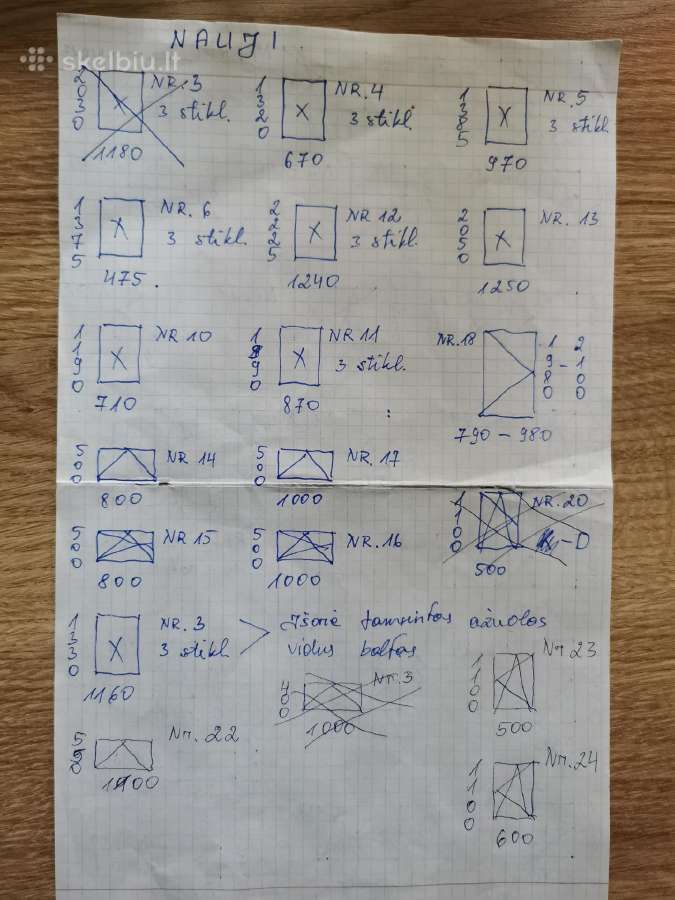 skelbiu.lt
NAUJI
2030 NR.3 3 stikl. 1180
1320 NR.4 3 stikl. 670
1385 NR.5 3 stikl. 970
1375 NR.6 3 stikl. 475.
2225 NR 12 3 stikl. 1240
2050 NR.13 1250
1190 NR 10 710
1990 NR 11 3 stikl. 870
NR.18 1980 - 2100 790 - 980
500 NR 14 800
500 NR.17 1000
500 NR 15 800
500 NR.16 1000
1100 NR.20 K-D 500
1330 NR.3 3 stikl. 1160
Išorė tamsintas ąžuolas
vidus baltas
400 Nr.3 1000
Nr 23 1100 500
Nr. 22
Nr.24 1100 600